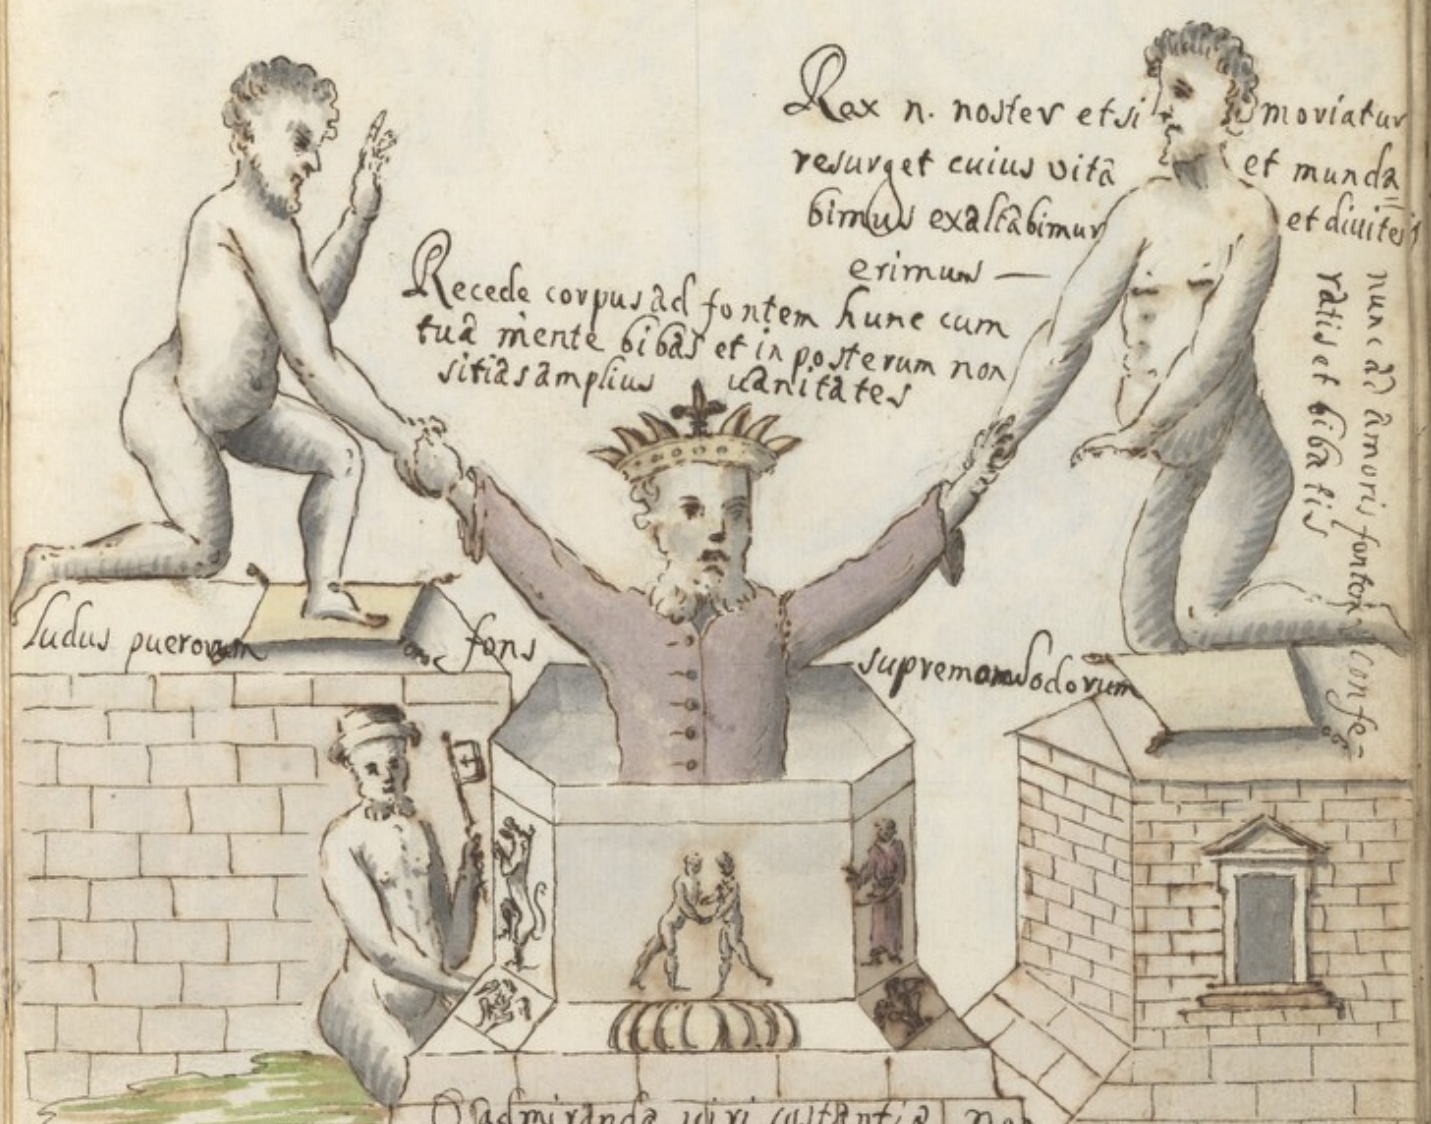 Rex n. noster etsi moriatur
resurget cuius vitâ et munda=
bimus exaltâbimur et diuites
erimus —
Recede corpus ad fontem hunc cum
tuâ mente bibas et in posterum non
sitias amplius uanitates
nunc ad amoris fontem confe-
ratis et bibatis
ludus puerorum fons supremorum
O admiranda uiri